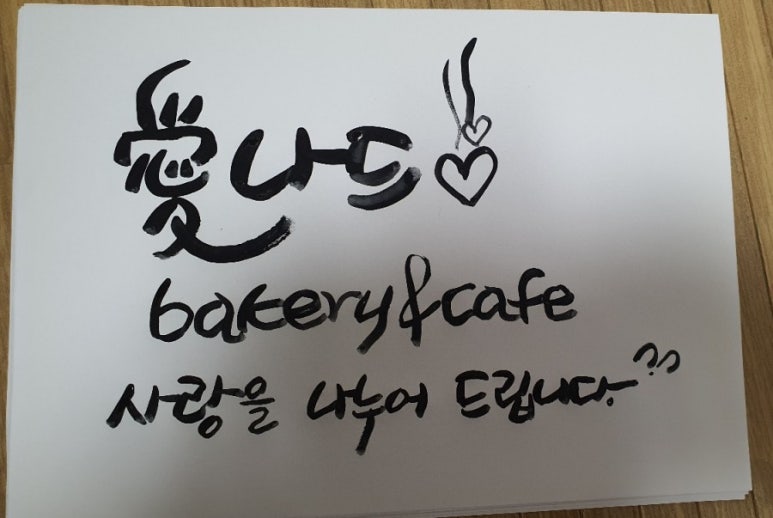 愛나드!
bakery&cafe
사랑을 나누어 드립니다.^^